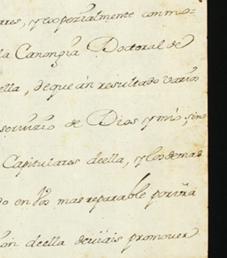 ares, y especialmente con mo=
la Canongia Doctoral de
ella, de que án resultado varios
servizio de Dios y mio, sino
Capitulares de ella, y los demas
do en lo mas reparable
de ella deviais promover